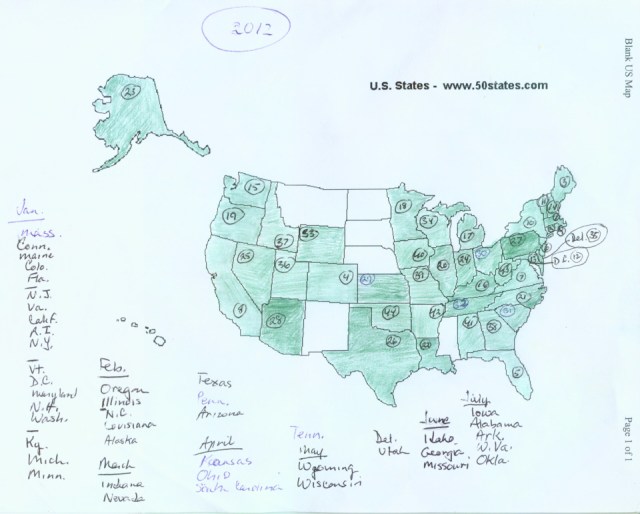 2012
U.S. States - www.50states.com
Blank US Map
Page 1 of 1
23
15
19
37
33
25
36
4
9
18
34
17
3
Del. 35
D.C. 12
44
26
5
Jan.
mass.
Conn.
maine
Colo.
Fla.
N.J.
Va.
Calif.
R.I.
N.Y.
Vt.
D.C.
maryland
N.H.
Wash.
Ky.
Mich.
Minn.
Feb.
Oregon
Illinois
N.C.
Louisiana
Alaska
March
Indiana
Nevada
Texas
Penn.
Arizona
April
Kansas
Ohio
South Carolina
Tenn.
May
Wyoming
Wisconsin
Del.
Utah
June
Idaho
Georgia
Missouri
July
Iowa
Alabama
Ark.
W.Va.
Okla.